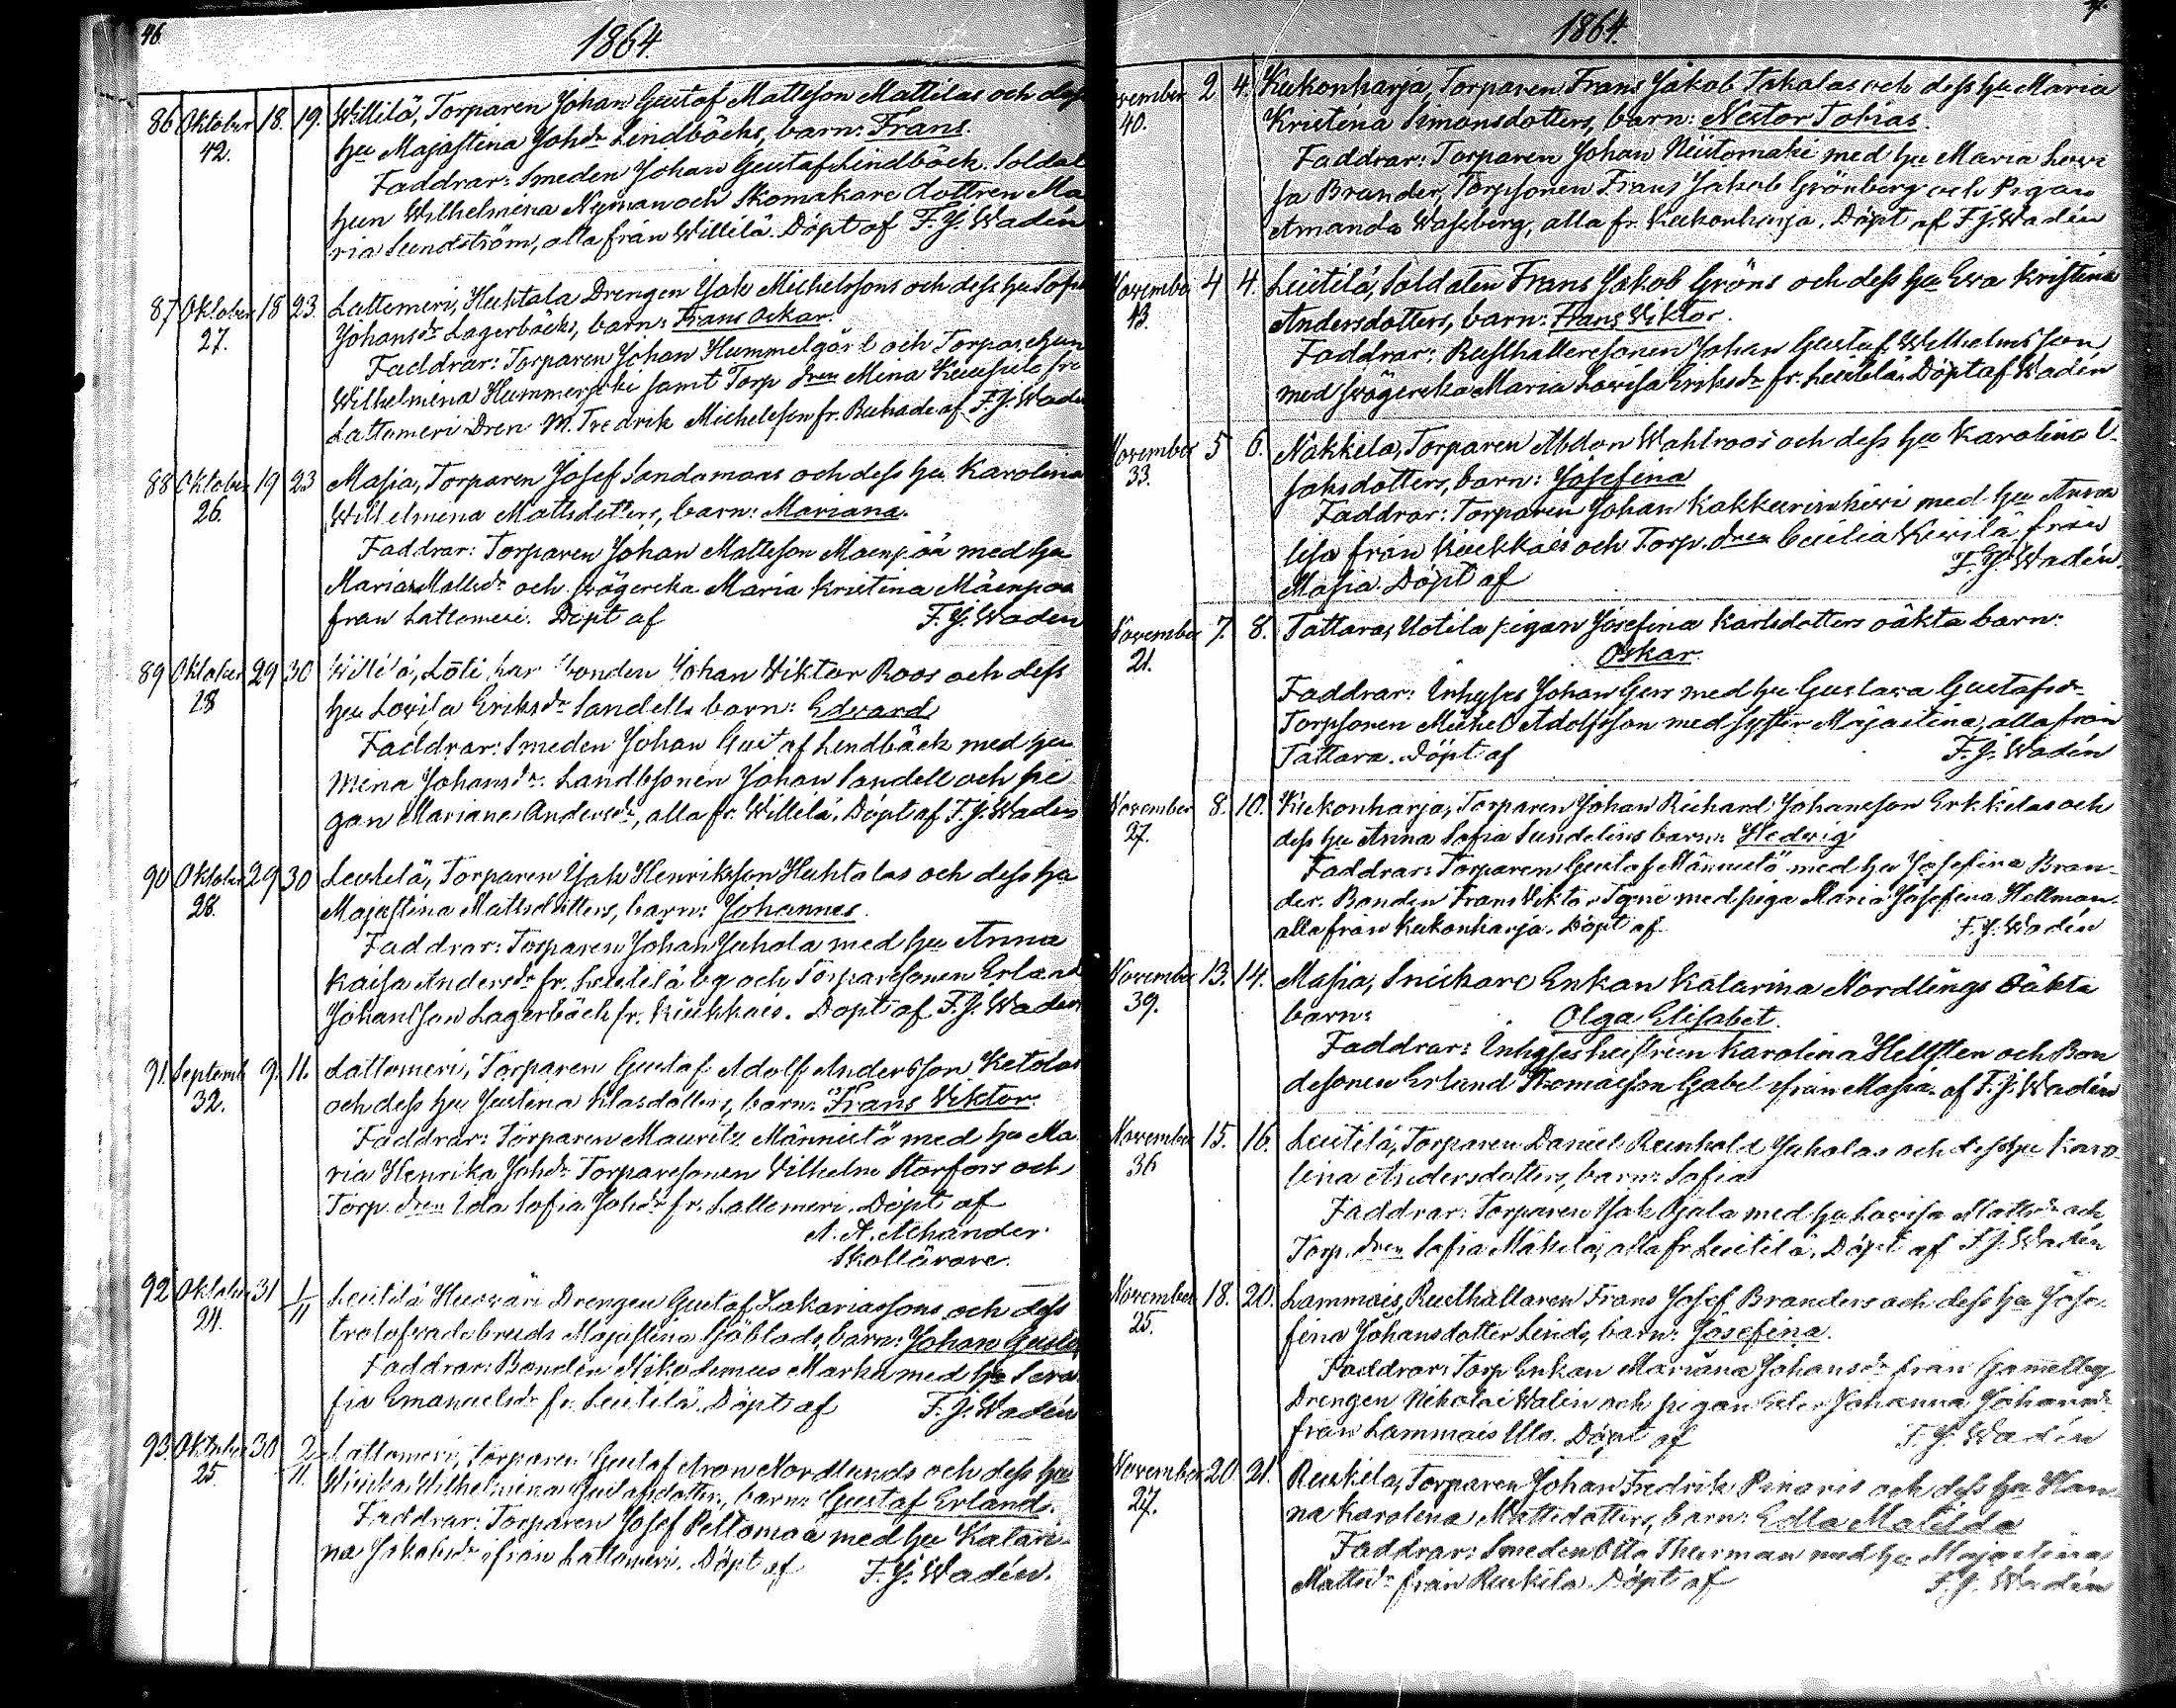 46.
1864.
86 Oktober 18. 19. Willilä, Torparen Johan Gustaf Mattsson Mattilas och dess
42. hu Majastina Johdr Lindböcks, barn: Frans.
Faddrar: Smeden Johan Gustaf Lindböck. Soldat
hun Wilhelmina Nyman och Skomakare dottren Ma
ria Sundström, alla från Willilä. Döpt af F. J. Wadén
87 Oktober 18 23. Lattomeri, Huhtala Drengen Isak Michelssons och dess hu Sofia
27. Johansdr Lagerbäcks, barn: Frans Oskar.
Faddrar: Torparen Johan Hummelgård och Torpare hun
Wilhelmina Hummer samt Torp dren Mina
Lattomeri Dren M. Fredrik Michelsson fr. af F. J. Wadén
88 Oktober 19 23 Masia, Torparen Josef Sandamaas och dess hu Karolina
26. Wilhelmina Mattsdotters, barn: Mariana.
Faddrar: Torparen Johan Mattsson Maenpää med hu
Maria Mattsdr och svägerska Maria Kristina Mäenpää
från Lattomeri. Döpt af F. J. Wadén
89 Oktober 29 30 Willilä, bonden Johan Wiktor Roos och dess
28 hu Lovisa Eriksdr Sandells barn: Edvard
Faddrar: Smeden Johan Gustaf Lindbäck med hu
Mina Johansdr. Landbsonen Johan Sandell och pi
gan Mariana Andersdr, alla fr. Willilä. Döpt af F. J. Wadén
90 Oktober 29 30 Leistilä, Torparen Isak Henriksson Huhtalas och dess hu
28. Majastina Mattsdotters, barn: Johannes.
Faddrar: Torparen Johan Juhola med hu Anna
Kaisa Andersdr fr. Leistilä by och Torparesonen Erland
Johansson Lagerbäck fr. Kiukkais. Döpt af F. J. Wadén
91. Septemb 9. 11. Lattomeri, Torparen Gustaf Adolf Andersson Ketolas
32. och dess hu Justina Klasdotters, barn: Frans Viktor.
Faddrar: Torparen Mauritz Männistö med hu Ma
ria Henrika Johdr Torparesonen Vilhelm Storfors och
Torp. dren Ida Sofia Johdr fr. Lattomeri. Döpt af
A. A. Alhander.
Skollärare.
92 Oktober 31 1/11 Leistilä Drengen Gustaf Zakariassons och dess
24. trolofvade bruds Majastina Sjöblads, barn: Johan Gustaf
Faddrar: Bonden Nikodemus Markku med hu Sera
fia Emanuelsdr fr. Leistilä. Döpt af F. J. Wadén
93. Oktober 30 2/11. Lattomeri, Torparen Gustaf Aron Nordlunds och dess hu
25. Wilhelmina Gustafsdotters, barn: Gustaf Erland.
Faddrar: Torparen Josef Peltomaa med hu Katari
na Jakobsdr ifrån Lattomeri. Döpt af F. J. Wadén.
1864.
November 2 4. Kukonharja, Torparen Frans Jakob Takalas och dess hu Maria
40. Kristina Simonsdotters, barn: Nestor Tobias.
Faddrar: Torparen Johan Niitomaki med hu Maria Lovi
sa Brander, Torpsonen Frans Jakob Grönberg och Pigan
Amanda Wassberg, alla fr. Kukonharja. Döpt af F. J. Wadén
November 4 4. Leistilä, Soldaten Frans Jakob Gröns och dess hu Eva Kristina
43. Andersdotters, barn: Frans Viktor.
Faddrar: Rusthållaresonen Johan Gustaf Wilhelmsson
med svägerska Maria Lovisa Eriksdr fr. Leistilä. Döpt af Wadén
November 5 6. Nakkila, Torparen Abdon Wahlroos och dess hu Karolina I-
33. saksdotters, barn: Josefina
Faddrar: Torparen Johan Kakkurinkivi med hu Anna
lisa från Kiukkais och Torp. dren Cecilia från
Masia. Döpt af F. J. Wadén.
November 7. 8. Tattara, Uotila pigan Josefina Karlsdotters oäkta barn:
21. Oskar.
Faddrar: Inhyses Johan Gers med hu Gustava Gustafsdr
Torpsonen Michel Adolfsson med syster Majastina, alla från
Tattara. Döpt af F. J. Wadén
November 8. 10. Kukonharja, Torparen Johan Richard Johansson Erkkilas och
27. dess hu Anna Sofia Sundelins barn: Hedvig
Faddrar: Torparen Gustaf Männistö med hu Josefina Bran-
der. Bonden Frans Viktor med piga Maria Josefina Hellman.
alla från Kukonharja. Döpt af F. J. Wadén
November 13. 14. Masia, Snickare Enkan Katarina Nordlings Oäkta
39. barn: Olga Elisabet.
Faddrar: Inhyses hustrun Karolina Hellsten och Bon
desonen Erland Thomasson Gabel ifrån Masia. af F. J. Wadén
November 15. 16. Leistilä, Torparen Daniel Reinhold Juholas och dess hu Karo-
36 lina Andersdotters, barn: Sofia
Faddrar: Torparen Isak Ojala med hu Lovisa Mattsdr och
Torp. dren Sofia Mäkelä, alla fr. Leistilä. Döpt af F. J. Wadén
November 18. 20. Lammais, Rusthållaren Frans Josef Branders och dess hu Jose-
25. fina Johansdotter Linds, barn: Josefina.
Faddrar: Torp Enkan Mariana Johansdr från Gammelby
Drengen Nikolai Walin och pigan Johanna Johansdr
från Lammais Ulla. Döpt af F. J. Wadén
November 20. 21. Ruskila, Torparen Johan Fredrik och dess hu Han-
27. na Karolina Mattsdotters, barn: Edla Matilda
Faddrar: Smeden Otto Thurman med hu Majastina
Mattsdr från Ruskila. Döpt af F. J. Wadén